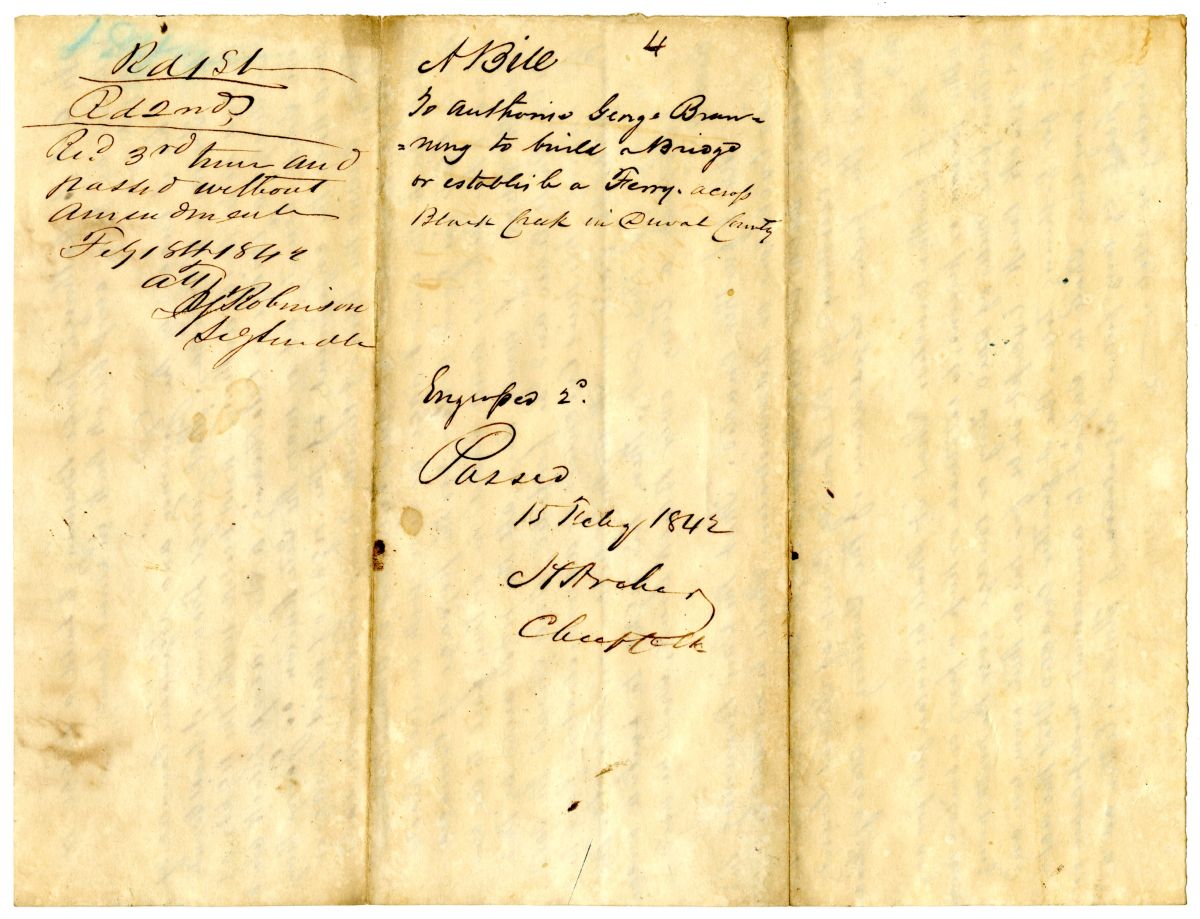 Rd 1st
Rd 2nd
Re.d 3rd time and
Passed without
Amendments
Feby 18th 1842
att
Robinson
4
A Bill
To authorise George Bran-
=ning to build a Bridge
or establish a Ferry. across
Black Creek in Duval County
Engrossed 2d.
Passed
15 Feby 1842
Archer
Chief Clk